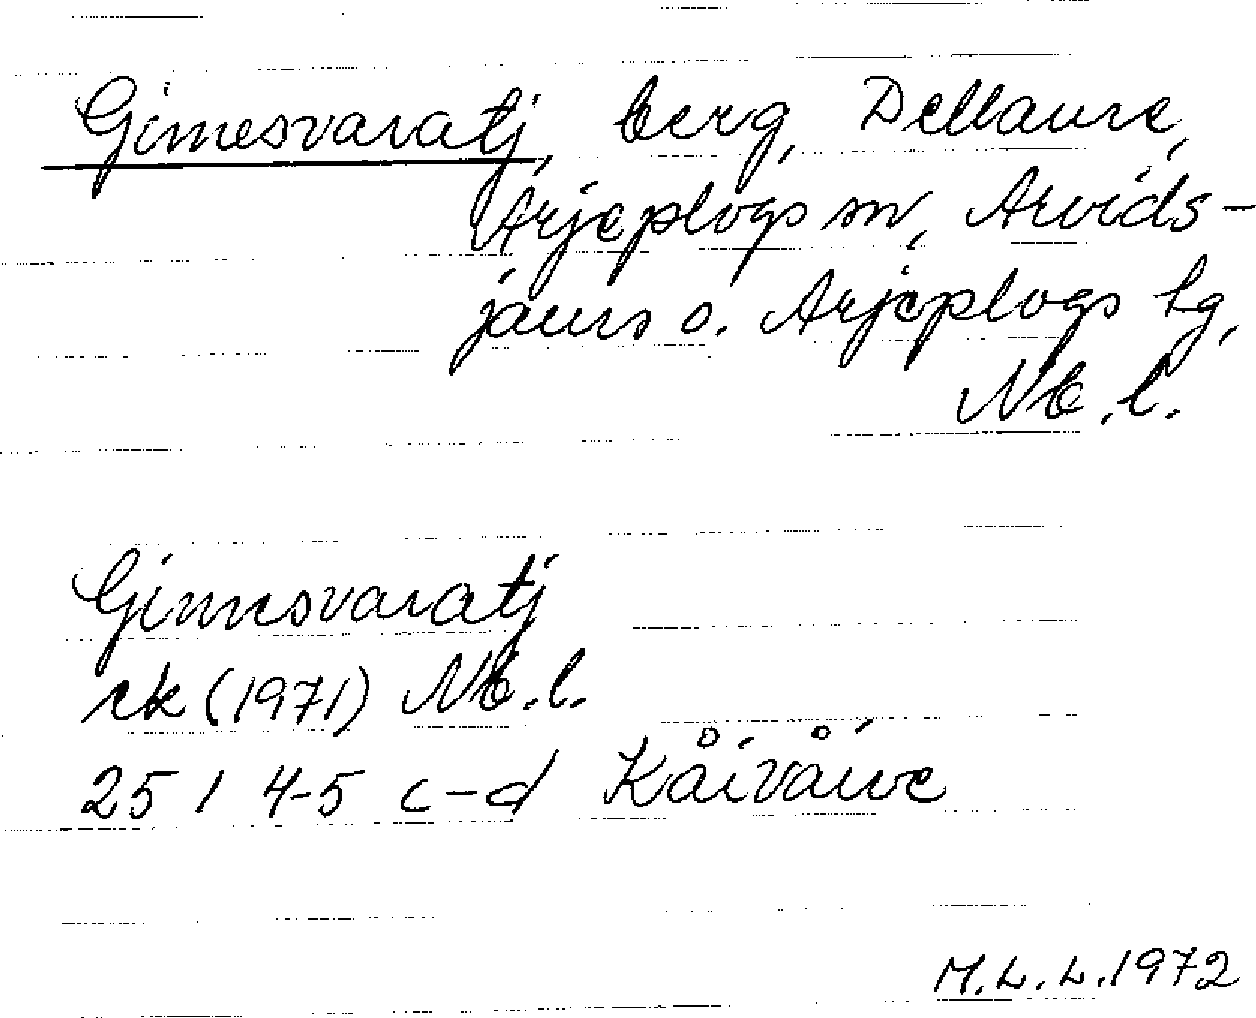 Gimesvaratj, berg, Dellaure,
Arjeplogs sn, Arvids-
jaurs o. Arjeplogs lg,
Nb. l.
Gimesvaratj
rk (1971) Nb. l.
25 I 4-5 c-d Kåivåive
M.L.L. 1972